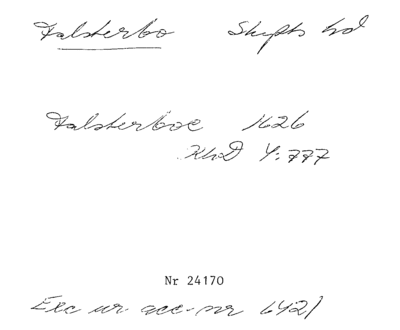 Falsterbo Skytts hd
Falsterboe 1626
KhD Y:777
Nr 24170
Exc ur acc-nr 6421